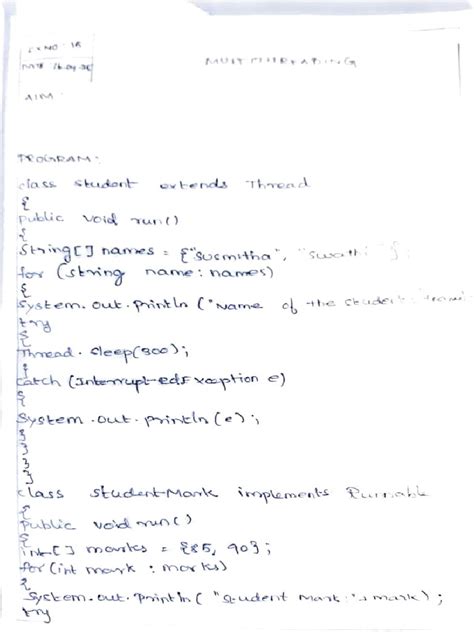 EX NO: 1R
DATE
MULTITHREADING
AIM:
PROGRAM:
class student extends Thread
{
public void run()
{
String[] names = {"Susmitha", "Swathi"};
for (string name: names)
{
System.out.println ("Name of the student:
try
{
Thread.sleep(300);
}
catch (InterruptedException e)
{
System.out.println(e);
}
}
}
}
class StudentMark implements Runnable
{
public void run()
{
int[] marks = {85, 90};
for(int mark : marks)
{
System.out.println( "Student Mark: mark);
try